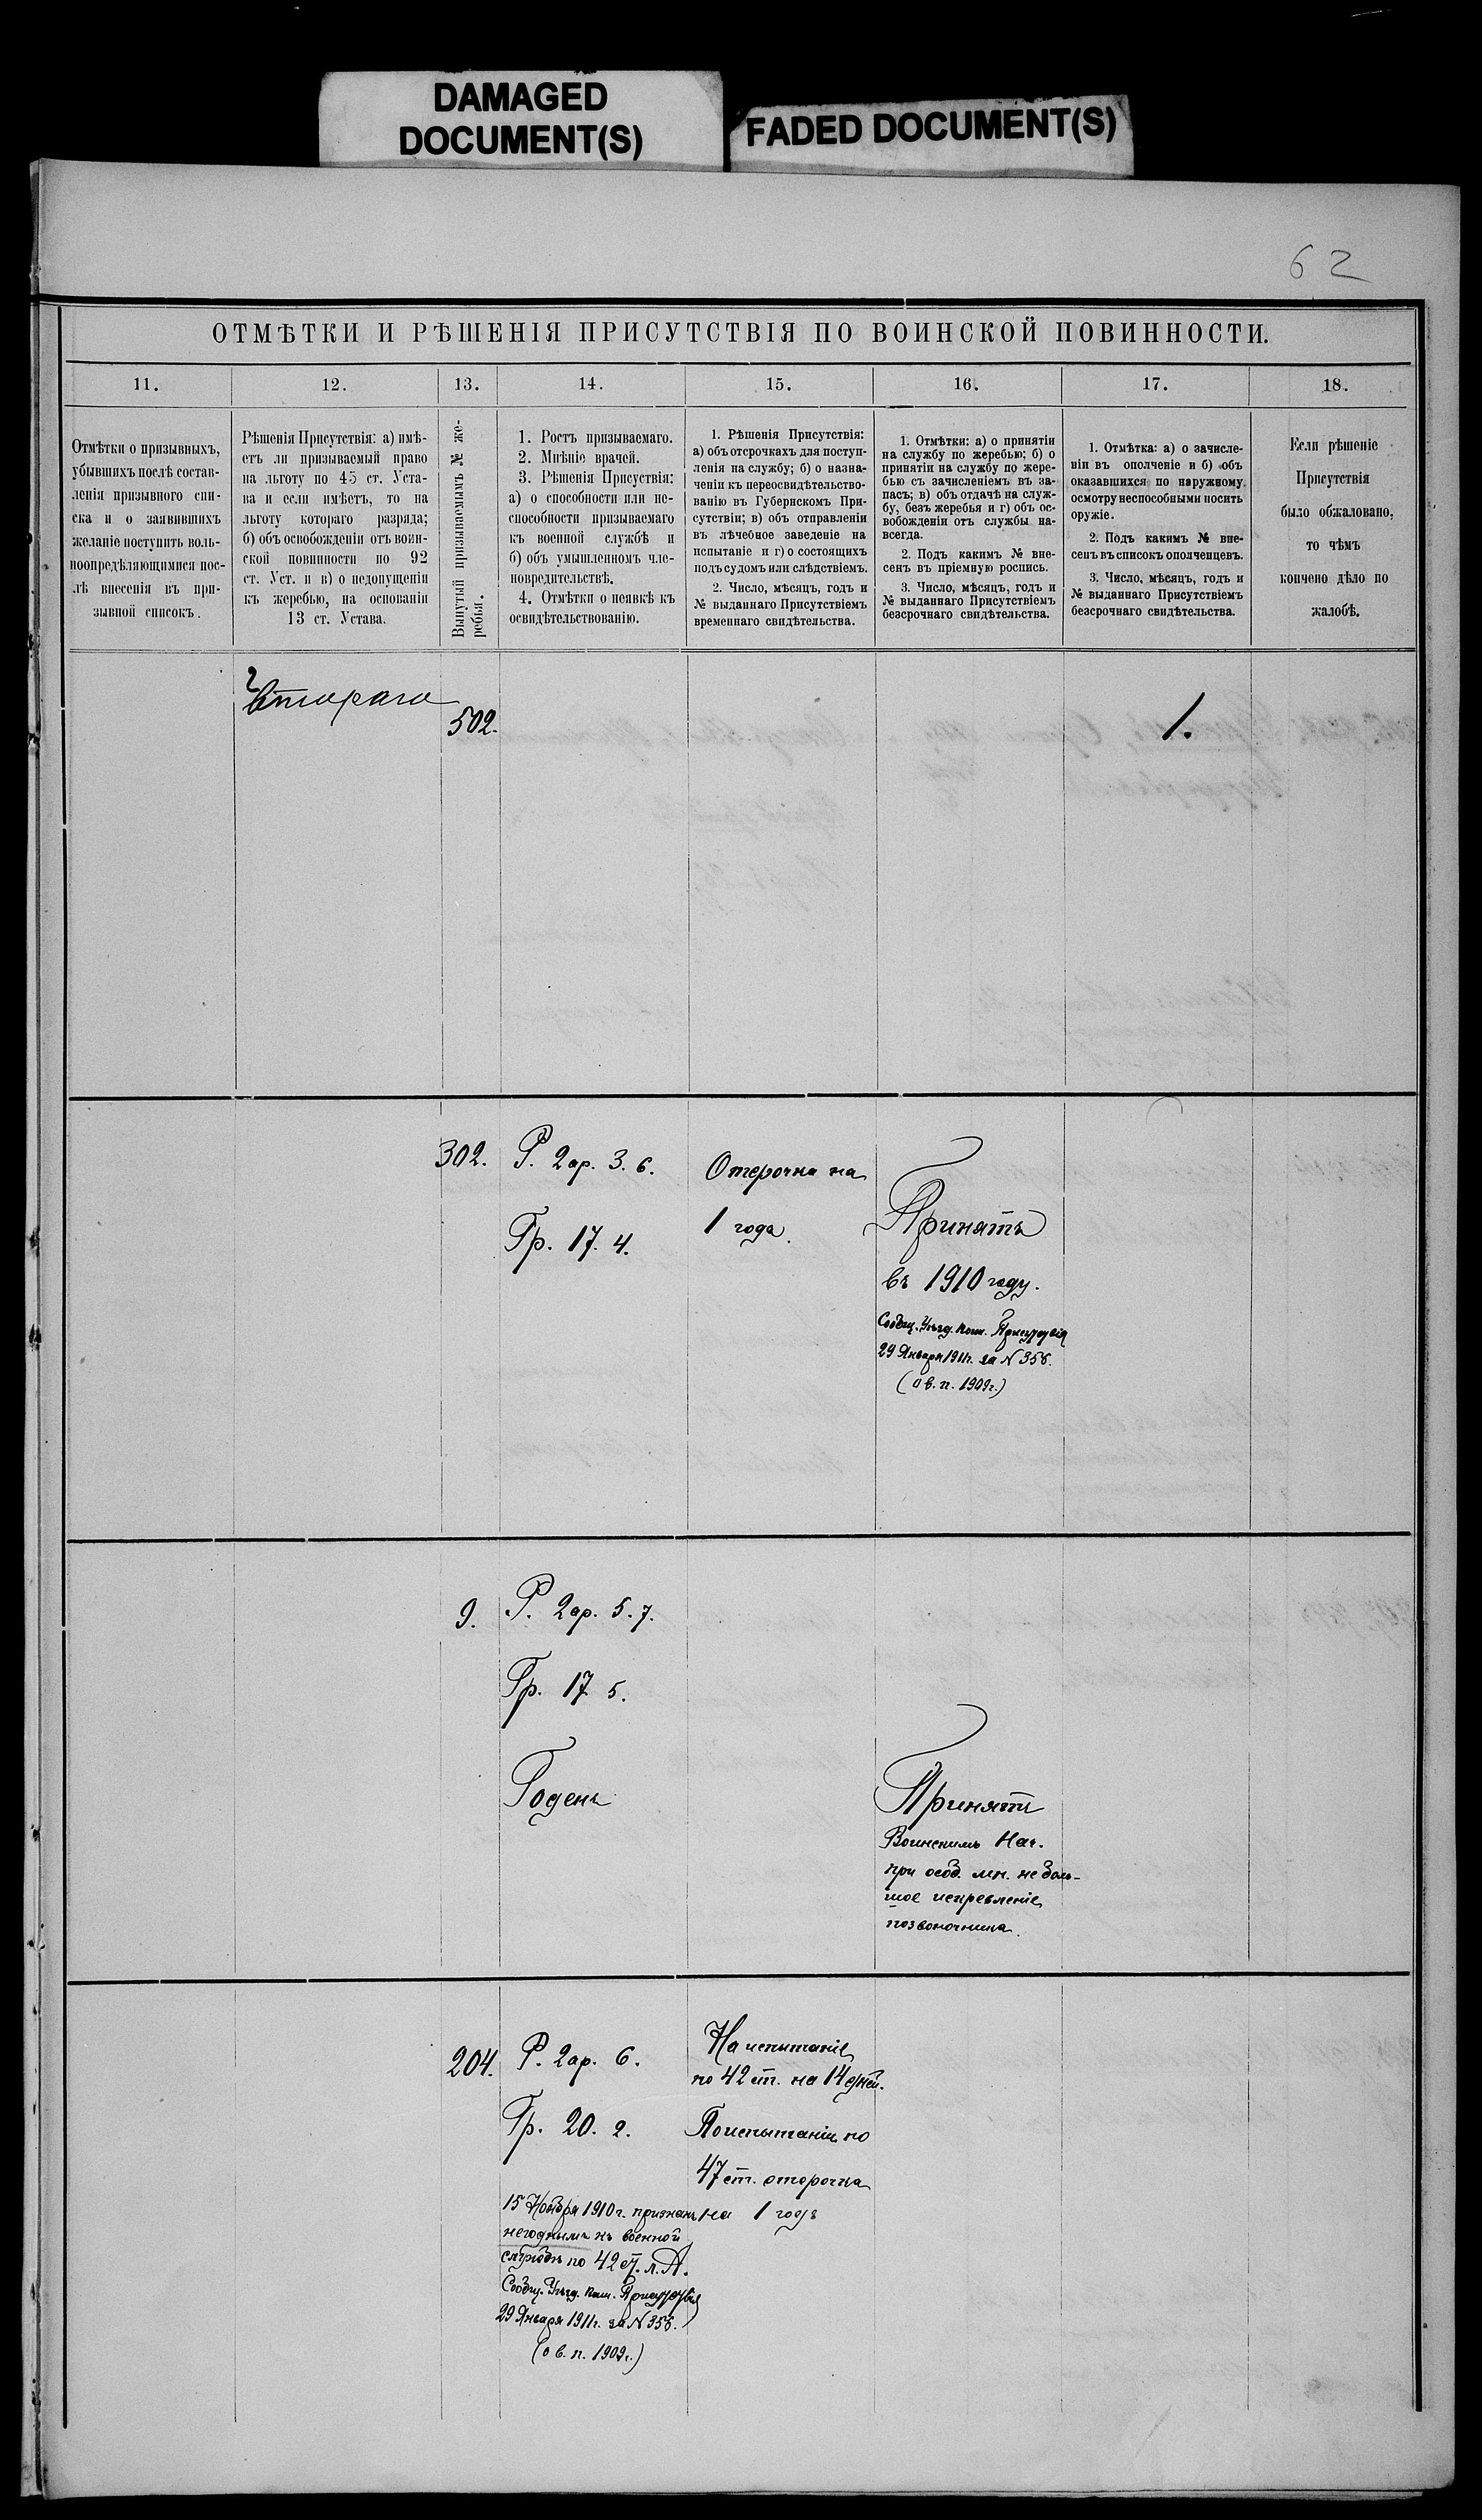 DAMAGED
DOCUMENT(S)
FADED DOCUMENT(S)
62
ОТМѢТКИ И РѢШЕНІЯ ПРИСУТСТВІЯ ПО ВОИНСКОЙ ПОВИННОСТИ.
11.
12.
13.
14.
15.
16.
17.
18.
Отмѣтки о призывныхъ,
убывшихъ послѣ состав-
ленія призывного спи-
ска и о заявившихъ
желаніе поступить воль-
ноопредѣляющимися пос-
лѣ внесенія въ при-
зывной списокъ.
Рѣшенія Присутствія: а) имѣ-
етъ ли призываемый право
на льготу по 45 ст. Уста-
ва и если имѣетъ, то на
льготу котораго разряда;
б) объ освобожденіи отъ воин-
ской повинности по 92
ст. Уст. и в) о недопущеніи
къ жеребью, на основаніи
13 ст. Устава.
Вынутый призываемымъ № же-
ребья.
1. Ростъ призываемаго.
2. Мнѣніе врачей.
3. Рѣшенія Присуствія:
а) о способности или не-
способности призываемаго
къ военной службѣ и
б) объ умышленномъ чле-
новредительствѣ.
4. Отмѣтки о неявкѣ къ
освидѣтельствованію.
1. Рѣшенія Присутствія:
а) объ отсрочкахъ для поступ-
ленія на службу; б) о назна-
ченіи къ переосвидѣтельство-
ванію въ Губернскомъ При-
сутствіи; в) объ отправленіи
въ лѣчебное заведеніе на
испытаніе и г) о состоящихъ
подъ судомъ или слѣдствіемъ.
2. Число, мѣсяцъ, годъ и
№ выданнаго Присутствіемъ
временнаго свидѣтельства.
1. Отмѣтки: а) о принятіи
на службу по жеребью; б) о
принятіи на службу по жере-
бью съ зачисленіемъ въ за-
пасъ; в) объ отдачѣ на служ-
бу, безъ жеребья и г) объ ос-
вобожденіи отъ службы на-
всегда.
2. Подъ какимъ № вне-
сенъ въ пріемную роспись.
3. Число, мѣсяцъ, годъ и
№ выданнаго Присутствіемъ
безсрочнаго свидѣтельства.
1. Отмѣтка: а) о зачисле-
ніи въ ополченіе и б) объ
оказавшихся по наружному
осмотру неспособными носить
оружіе.
2. Подъ какимъ № вне-
сенъ въ списокъ ополченцевъ.
3. Число, мѣсяцъ, годъ и
№ выданнаго Присутствіемъ
безсрочнаго свидѣтельства.
Если рѣшеніе
Присутствія
было обжаловано,
то чѣмъ
кончено дѣло по
жалобѣ.
Втораго
502.
1.
302.
Р. 2 ар. 3. 6.
Гр. 17. 4.
Отсрочка на
1 года.
Принятъ
въ 1910 году.
Сообщ. Уѣзд. Присутствія
29 Января 1911г. за N 356.
(о в. п. 1909г.)
9.
Р. 2 ар. 5. 7.
Гр. 17 5.
Годенъ
Принятъ
Воинскимъ Нач.
при особ. мн. не боль-
шое искревленіе
позвоночника.
204.
Р. 2 ар. 6.
Гр. 20. 2.
15 Ноября 1910 г. признанъ
негоднымъ къ военной
службѣ по 42 ст. л. А.
Сообщ. Уѣзд. Присутствія
29 Января 1911г. за N 356.
(о в. п. 1909г.)
На испытаніе
по 42 ст. на 14 дней.
По испытаніи по
47 ст. отсрочка
на 1 годъ